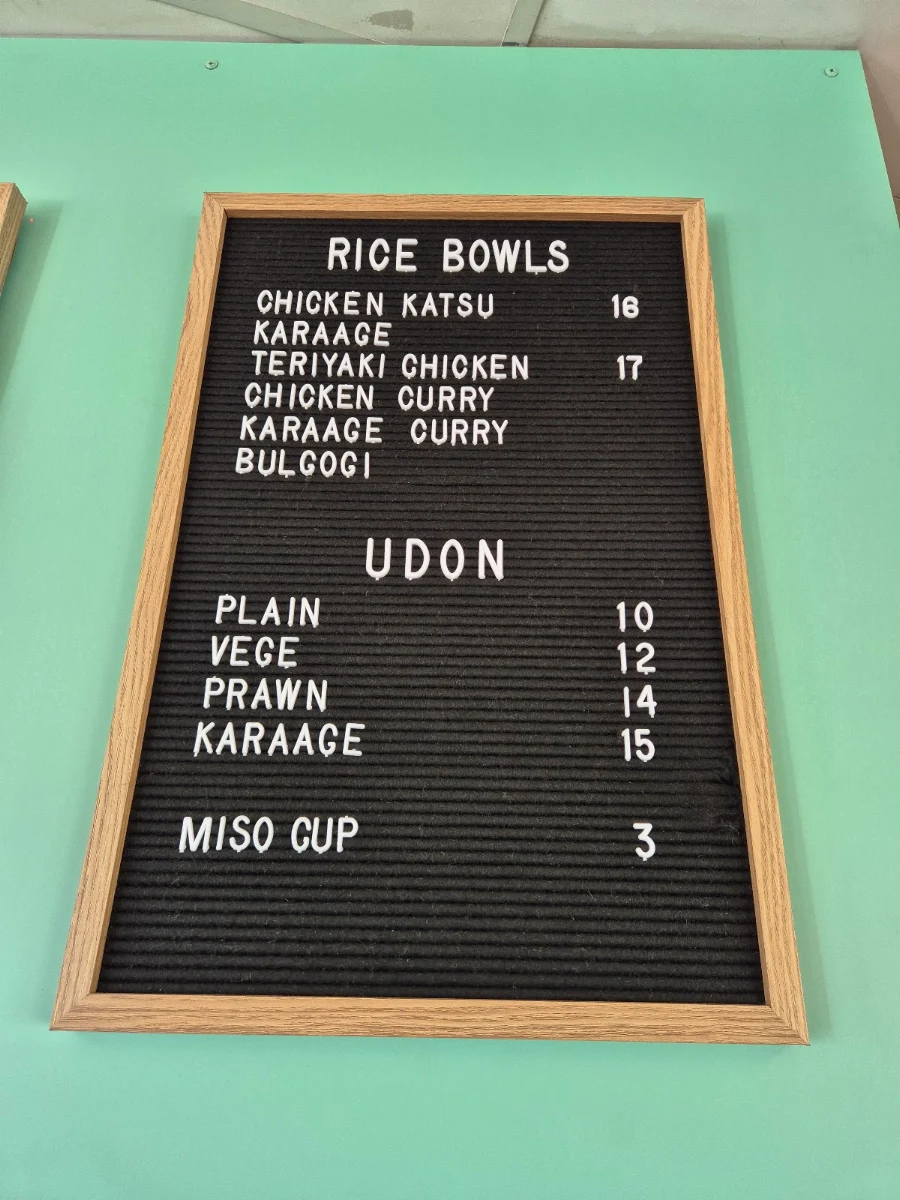 RICE BOWLS
CHICKEN KATSU 16
KARAAGE
TERIYAKI CHICKEN 17
CHICKEN CURRY
KARAAGE CURRY
BULGOGI
UDON
PLAIN 10
VEGE 12
PRAWN 14
KARAAGE 15
MISO CUP 3